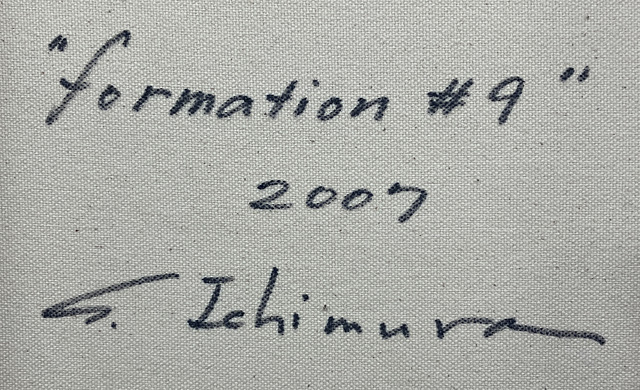 "formation #9"
2007
S. Ichimura